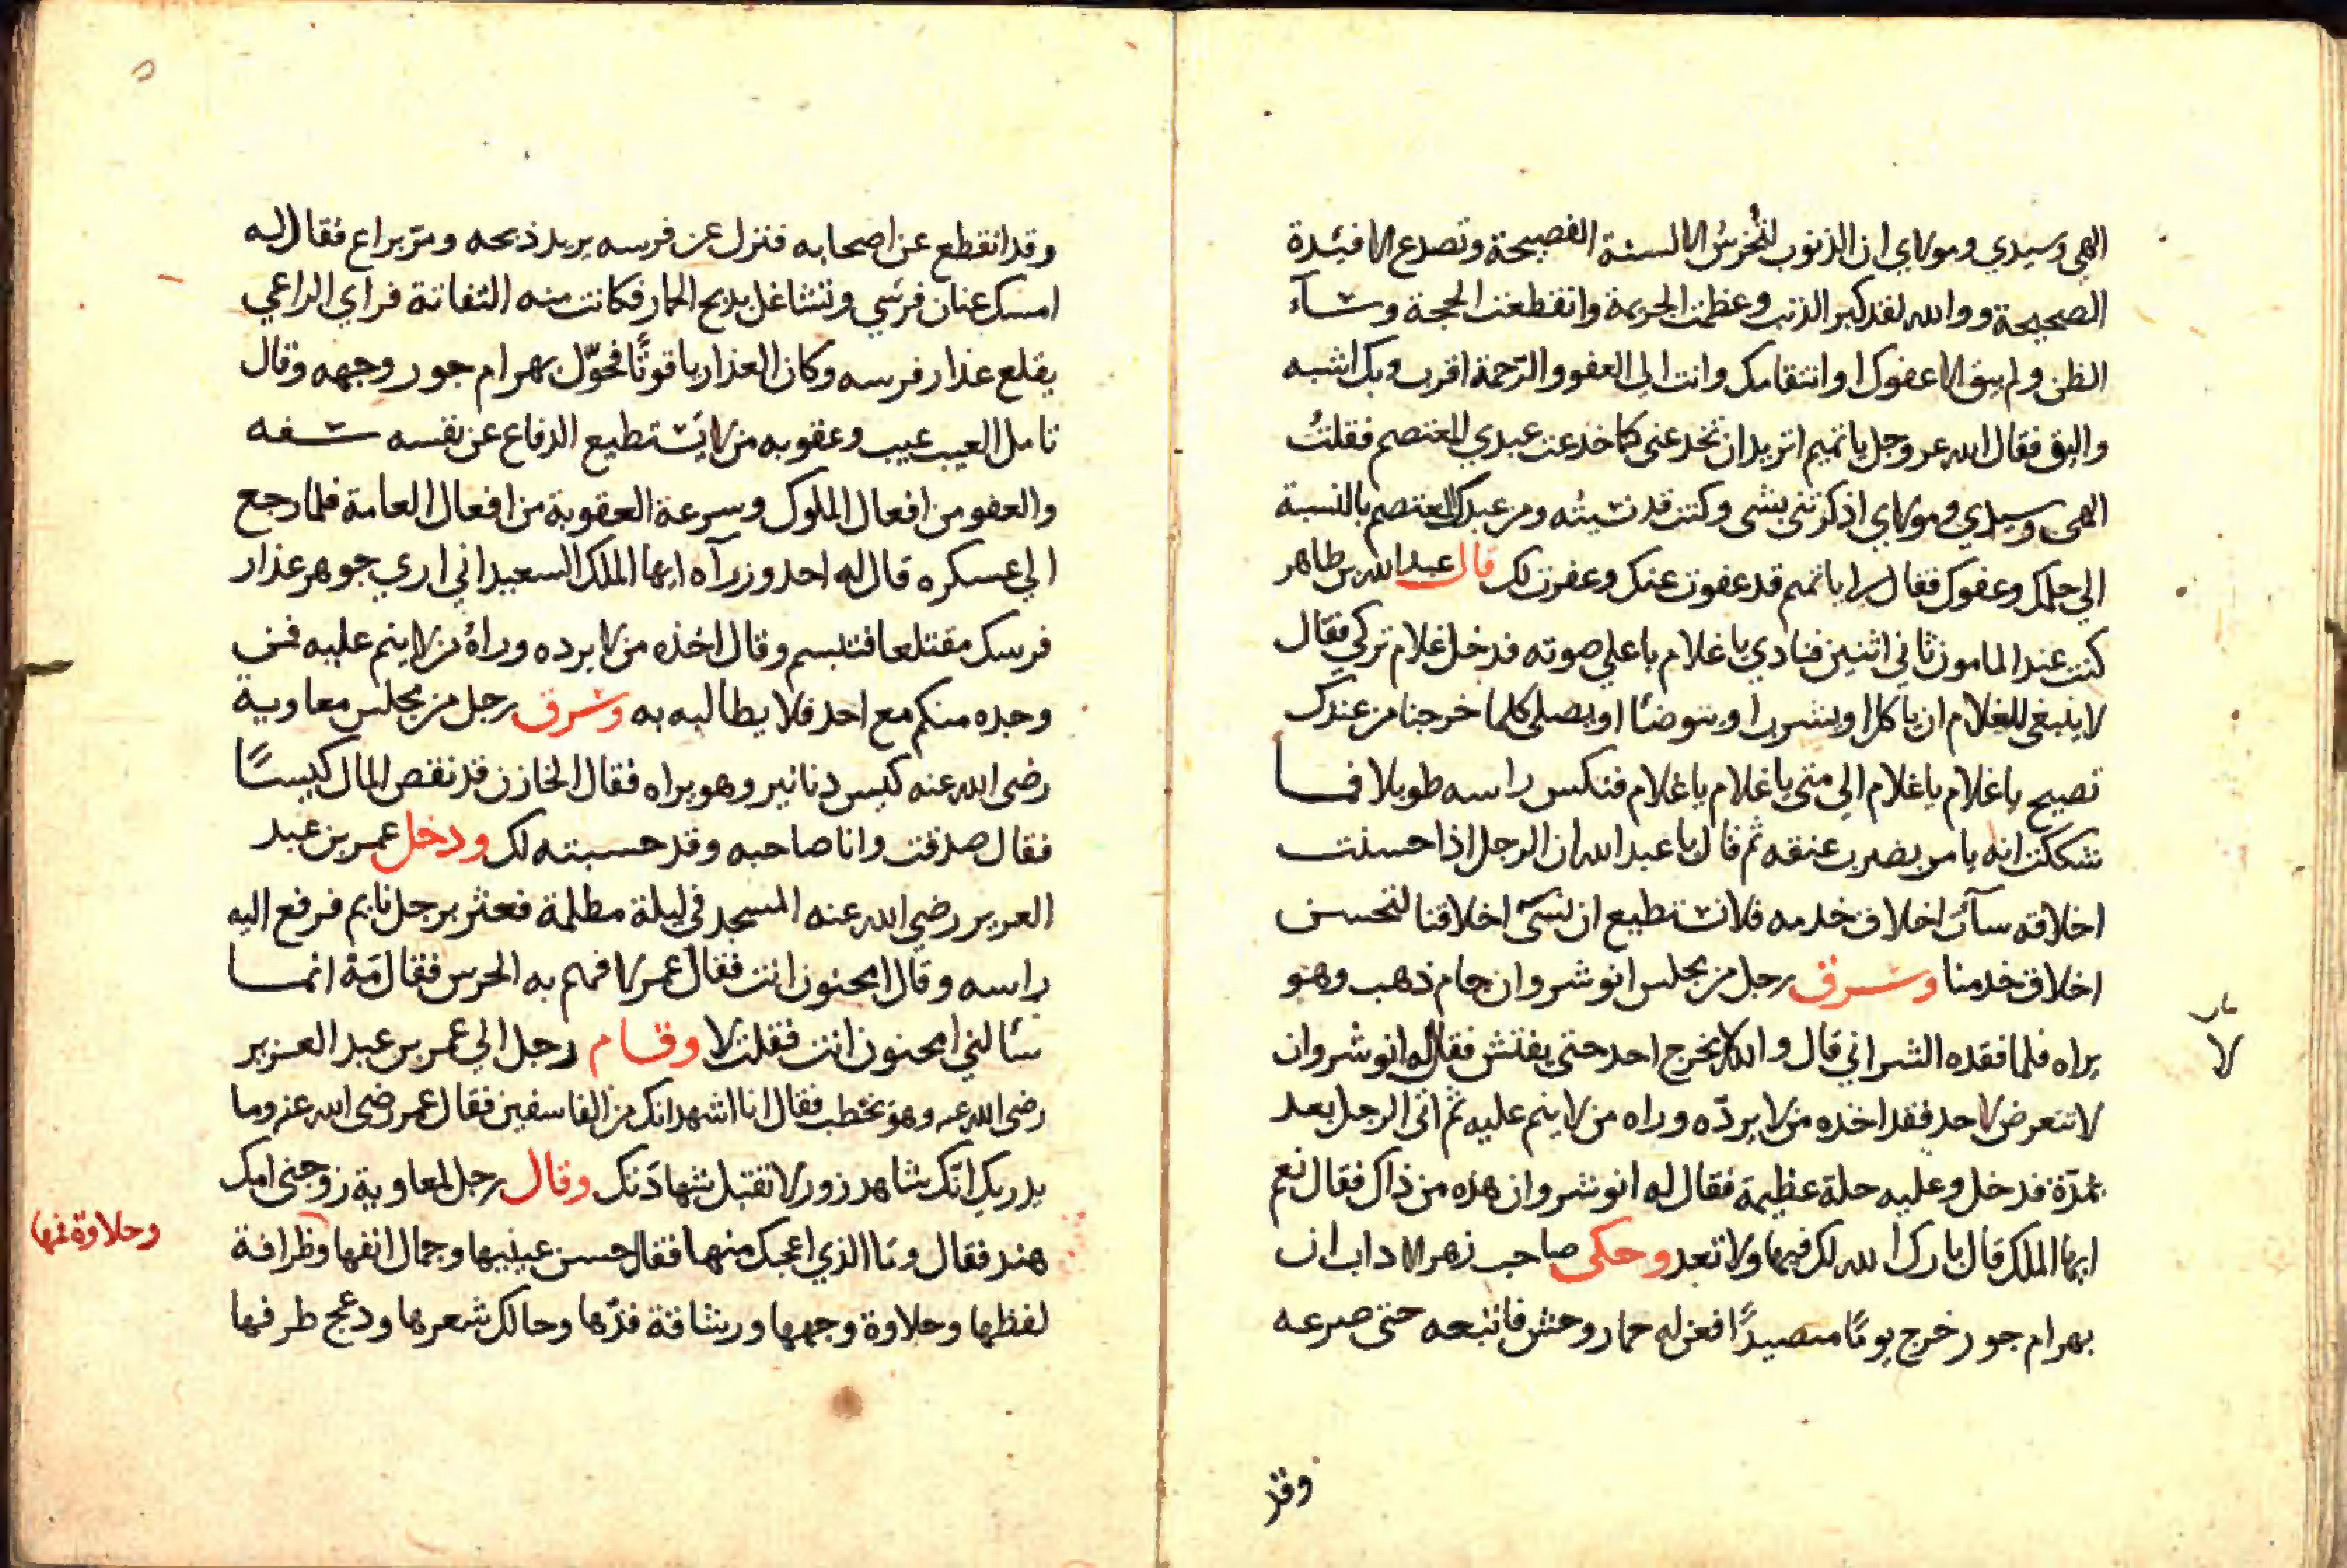 الهي وسيدي ومولاي ان الذنوب لتُخرسُ الالسنة الفصيحة وتصدع الافئدة
الصحيحة ووالله لقد كبر الذنب وعظمت الجريمة وانقطعت الحجة وسآء
الظن ولم يبق الا عفوك او انتقامك وانت الى العفو والرّحمة اقرب وبك اشبه
واليق فقال الله عز وجل يا تميم اتريد ان تخدعنى كما خدعت عبدي المعتصم فقلتُ
الهى وسيدي ومولاي اذكرتنى بشى وكنت قد نسيته ومر عبدك المعتصم بالنسبة
الي حلمك وعفوك فقال لي يا تميم قد عفوت عنك وغفرت لك قال عبد الله بن طاهر
كنت عند المامون ثاني اثنين فنادي يا غلام باعلي صوته فدخل غلام تركي فقال
لا ينبغى للغلام ان ياكل او يشرب او يتوضئا او يصلى كلما خرجنا من عندك
تصيح يا غلام يا غلام الي متى يا غلام يا غلام فنكس راسه طويلا فما
شككت انه يامر بضرب عنقه ثم قال يا عبد الله ان الرجل اذا حسنت
اخلاقه سآت اخلاق خدمه فلا نستطيع ان نسئ اخلاقنا لتحسن
اخلاق خدمنا وسرق رجل من مجلس انوشروان جام ذهب وهو
يراه فلما فقده الشرابي قال والله لا يخرج احد حتى يفتش فقال له انوشروان
لا تتعرض لاحد فقد اخذه من لا يردّه وراه من لا ينم عليه ثم اتى الرجل بعد
مدّة فدخل وعليه حلة عظيمة فقال له انوشروان هذه من ذاك فقال نعم
ايها الملك قال بارك الله لك فيها ولا تعد وحكى صاحب زهر الاداب ان
بهرام جور خرج يومًا متصيدًا فعن له حمار وحش فاتبعه حتى صرعه
وقد
لا
وقد انقطع عن اصحابه فنزل عن فرسه يريد ذبحه ومرّ براع فقال له
امسك عنان فرسي وتشاغل بذبح الحمار فكانت منه التفاتة فراي الراعي
يقلع عذار فرسه وكان العذار ياقوتًا فحوّل بهرام جور وجهه وقال
تامل العيب عيب وعقوبه من لا يستطيع الدفاع عن نفسه سفه
والعفو من افعال الملوك وسرعة العقوبة من افعال العامة فلما رجع
الي عسكره قال له احد وزرآه ايها الملك السعيد اني اري جوهر عذار
فرسك مقتلعا فتبسم وقال اخذه من لا يرده وراهُ من لا ينم عليه فمن
وجده منكم مع احد فلا يطالبه به وسرق رجل من مجلس معاوية
رضى الله عنه كيس دنانير وهو يراه فقال الخازن قد نقص المال كيسًا
فقال صدقت وانا صاحبه وقد حسبته لك ودخل عمر بن عبد
العزيز رضى الله عنه المسجد في ليلة مظلمة فعثر برجل نايم فرفع اليه
راسه وقال امجنون انت فقال عمر لا فهم به الحرس فقال مَهْ انما
سالني امجنون انت فقلت لا وقام رجل الي عمر بن عبد العزيز
رضى الله عنه وهو يخطب فقال انا اشهد انك من الفاسقين فقال عمر رضى الله عنه وما
يدريك انّك شاهد زور لا تقبل شهادتك وقال رجل لمعاوية زوجنى امك
هند فقال وما الذي اعجبك منها فقال حسن عينيها وجمال انفها وظرافة
لفظها وحلاوة وجهها ورشاقة قدّها وحالك شعرها ودعج طرفها
وحلاوة فمها